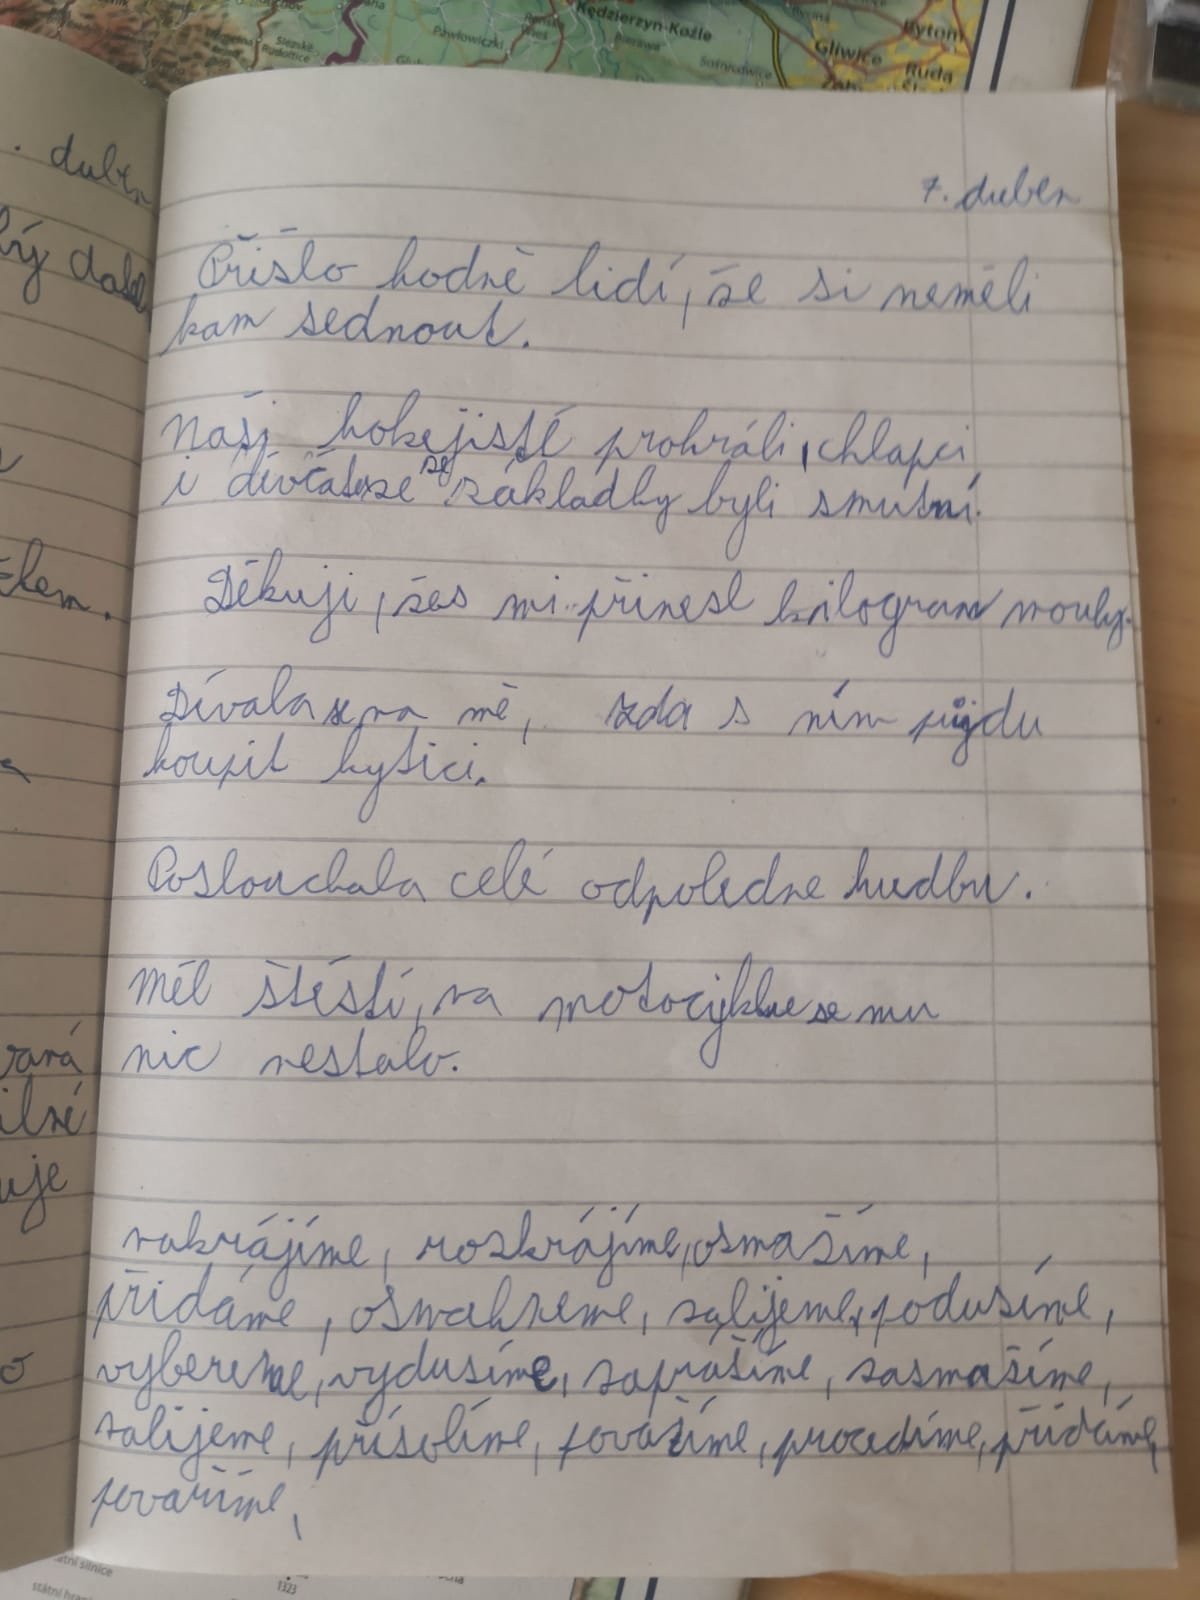 Kędzierzyn-Koźle
Pawłowiczki
Bierawa
Sośnicowice
Gliwice
Bytom
Ruda
. duben
7. duben
Přišlo hodně lidí, že si neměli
kam sednout.
Naši hokejisté prohráli, chlapci
i děvčata ze se základky byli smutní.
Děkuji, žes mi přinesl kilogram mouky.
Dívala se na mě, zda s ním půjdu
koupit kytici.
Poslouchala celé odpoledne hudbu.
Měl štěstí, na motocyklu se mu
nic nestalo.
nakrájíme, rozkrájíme, osmašíme,
přidáme, osmahneme, zalijeme, podusíme,
vybereme, vydusíme, zaprašíme, zasmašíme,
zalijeme, přisolíme, povaříme, procedíme, přidáme,
povaříme,
1323